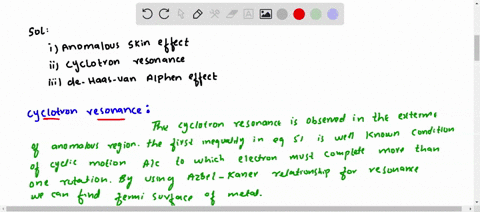 Sol:
i) Anomalous skin effect
ii) cyclotron resonance
iii) de-Haas-van Alphen effect
cyclotron resonance:
The cyclotron resonance is observed in the extreme
of anomalous region. the first inequality in eq 51 is well known condition
of cyclic motion A|c to which electron must complete more than
one rotation. By using Azbel-Kaner relationship for resonance
we can find fermi surface of metal.